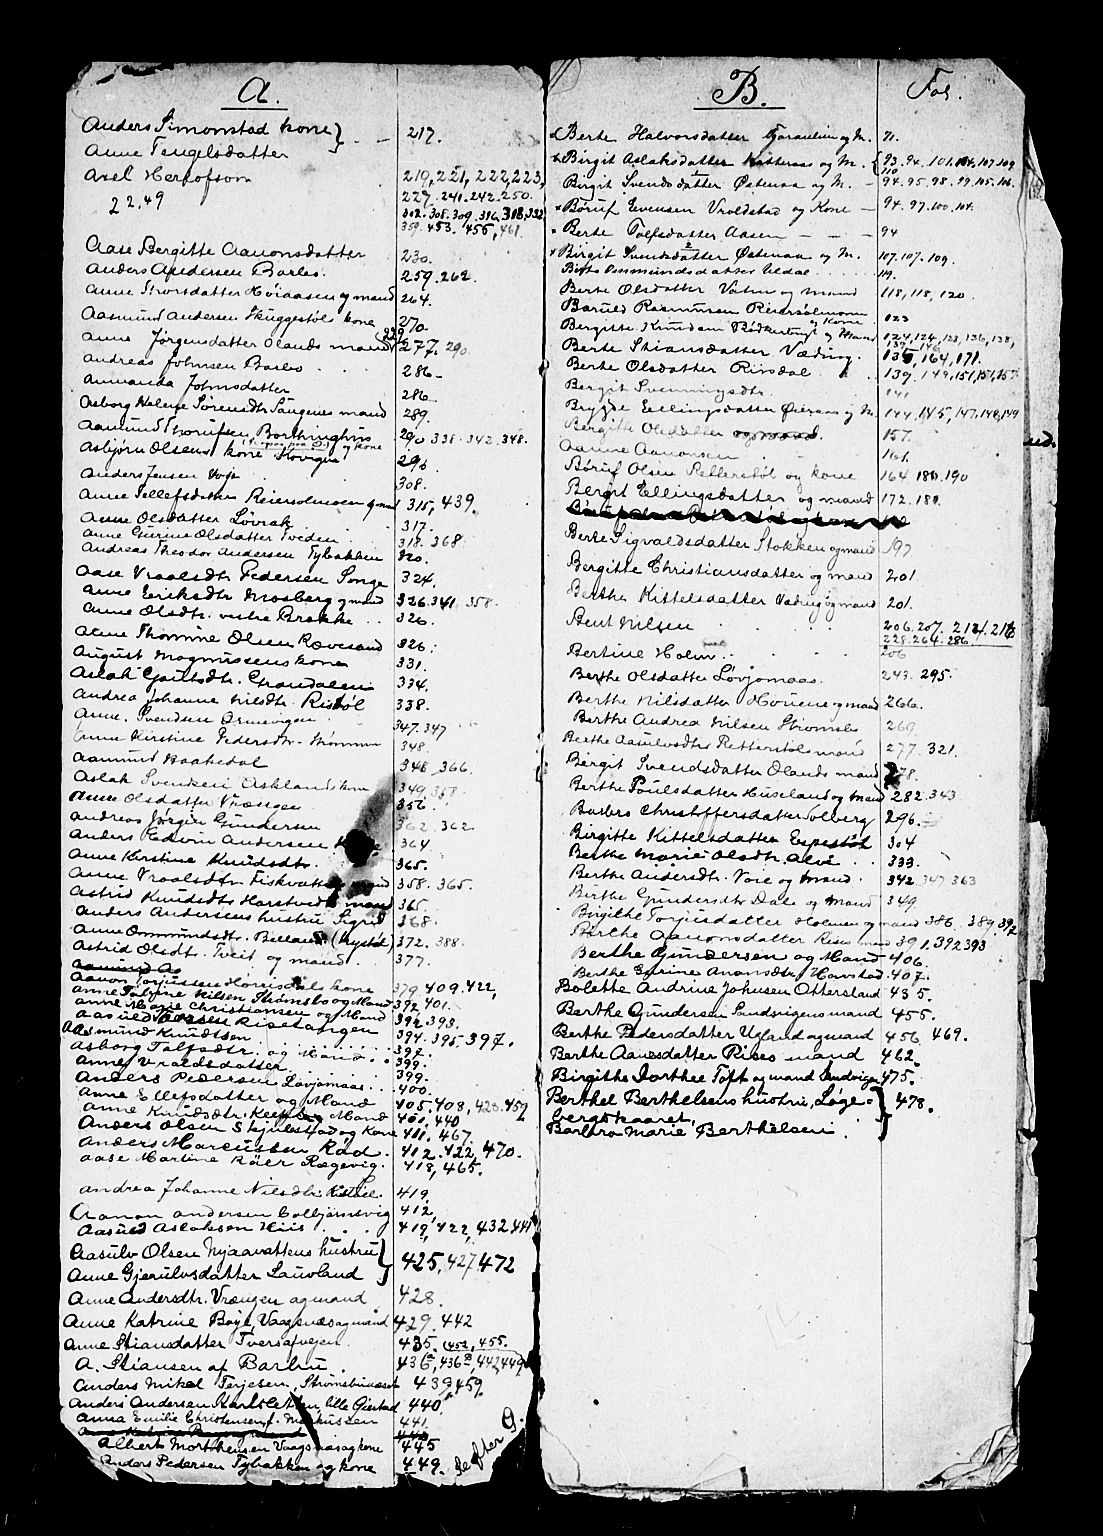 A.
Anders Simonstad kone } 217.
Anne Tengelsdatter
Axel Herlofson 219, 221, 222, 223,
22.49 227. 241. 242. 250.
302. 308. 309. 316. 318. 322
359. 453. 455, 461.
Aase Bergitte Aanonsdatter 230.
Anders Andersen Barbo. 259. 262.
Anne Thorsdatter Høiaasen og mand 264.
Aasmund Andersen Skuggestøls kone 270.
Anne Jørgensdatter Olands mand 277. 290
Andreas Johnsen Barbo 286
Annanda Johnsdatter 286.
Asborg Helene Sørensdtr Saugenes mand 289.
Aamund Thorufsen Borthinghus og kone 290 338. 342. 348.
Asbjørn Olsens kone 296.
Anders Jensen Voje 308.
Anne Tellefsdatter Reiersølmoen og mand 315, 439.
Anne Olsdatter Løvrak 317.
Anne Gurine Olsdatter Tveden 318. 368.
Andreas Theodor Andersen Tybakken 320.
Aase Vraalsdtr Pedersen Songe 324.
Anne Eriksdtr Mosberg og mand 326. 341. 358.
Anne Olsdtr. vestre Brække 326.
Anne Thomine Olsen Rævesand 326.
August Magnussens kone 331.
Aslak Gautsdtr. Grandalen 334.
Andrea Johanne Nilsdtr. Ristøl 338.
Anne Svendsen Ornevigen 347. 347
Anne Kirstine Pedersdtr. Strømmen 348.
Aamund Haakedal 348. 366.
Aslak Svenken Asklands kone 349. 358
Anne Olsdatter Vrængen 356.
Andreas Jørgen Gundersen 362. 362.
Anders Edvin Andersen 364.
Anne Kirstine Knudsdtr. 365.
Anne Vraalsdtr. Fiskvatn mand 358. 365.
Astrid Knudsdtr Harstvedt mand 365.
Anders Andersens hustru Sigrid 368.
Anne Ommundsdtr. Belland (Nystøl) 372. 388.
Astrid Olsdt. Tveit og mand 377.
Aanon Torjussen Hornsdal kone 379 409. 422,
Anne Tabine Nilsen Strømsbo og Mand 392. 401.
Anne Marie Christiansen og Mand 392 393.
Aasuld Risetangen 394. 395. 397.
Aasmund Knudtsen
Asborg Tolfsdtr. og Mand 397.
Anne Vraldsdatter 399.
Anders Pedersen Løvjomaas 399.
Anne Ellefsdatter og Mand 400.
Anne Knudsdtr. og Mand 405. 408, 428. 459
Anders Olsen Skjulestad og Kone 411. 467.
Anders Marcussen Rød. 412. 422, 470.
Aase Martine Kåer Rægevig. 418, 465.
Andrea Johanne Nilsdtr. Ristøl. 419.
Aanon Andersen Colbjørnsvig 412,
Aasuld Aslaksen Hiis 419, 422, 432 441
Aasulv Olsen Mjaavattens hustru } 425, 427 472
Anne Gjerulvsdatter Lauvland
Anne Andersdtr. Vrængen og mand. 428.
Anne Katrine Boye, Vaagsnæs og mand 429. 442
Anne Stiansdatter Tversafvejen. 435. (452, 455.
A. Stiansen af Barbu. 436, 436, 442, 449
Anders Mikal Terjesen, Strømsbunæset 439, 459.
Anders Andersen lille Gjestad 440.
Anna Emilie Christensen f. Markussen 441.
Albert Morthensen Vaagsnæs og kone 445
Anders Pedersen Tybakken og kone 449. Se efter G.
B. Fol.
Berte Halvorsdatter og M. 71.
Birgit Aslaksdatter og M. { 93. 94. 101. 104. 107. 109 110
Birgit Svendsdatter Østenaa og M. 94. 95. 98. 99. 105. 106.
Børuf Evensen Vroldstad og Kone 94. 97. 100. 104.
Berte Tolfsdatter Aasen 94
Birgit Svendsdatter Østenaa og M. 107. 107. 109.
Birte Ommundsdatter Uldal 119.
Berte Olsdatter Vatne og mand 118, 118, 120.
Baruld Rasmussen Reiersølmoen og Kone 123
Bergitte Knudsen og Mand 124, 124, 128, 136, 138,
139 146
Berte Stiansdatter Væding. 135, 164, 171.
Berte Olsdatter Rinsdal 139. 149. 151, 151, 157
Bergit Svenningsdtr. 141
Brygde Eellingsdatter og M. 144, 145, 147, 148, 149
Bergitte Olsdatter 157.
Aanne Aanonsen 161.
Børuf Olsen Retterstøl og kone 164 180. 190
Bergit Ellingsdatter og mand 172. 180.
Berte Sigvaldsdatter Stokken og mand 197
Bergitte Christiansdatter og mand 201.
Berthe Kittelsdatter Væding og mand 201.
Bent Nilsen 206. 207. 214. 216
228. 264. 286.
Bertine Holm 206
Berthe Olsdatter Løvjomaas. 243. 295.
Berthe Nilsdatter Houene og mand 266.
Berthe Andrea Nilsen Strømsbo 269
Berthe Aasulvsdtr Retterstøls mand 277. 321.
Bergit Svendsdatter Olands mand 278.
Berthe Poulsdatter Huseland og mand 282. 343
Barbro Christoffersdatter Solberg 296.
Birgitte Kittelsdatter Espestøl 304
Berthe Marie Olsdtr. Alve 333.
Berthe Andersdtr. Voie og Mand 342. 347 363
Birthe Gundersdtr Dale og Mand 349.
Birgithe Torjusdatter Holmen og mand 386. 389. 392
Berthe Aanonsdatter Rises mand 391. 392 393
Berthe Gundersen og Mand 406.
Berthe Gurine Anonsdtr. Havstad 407.
Bolette Andrine Johnsen Otterstand 435.
Berthe Gundersen Sandvigens mand 455.
Berthe Pedersdatter Ugland og mand 456. 469.
Berthe Aanesdatter Rises mand 462.
Birgithe Dorthee Toft og mand Sandvigen 475.
Berthel Berthelsens hustru, Løge-
bergskaaret, } 478.
Barbro Marie Berthelsen